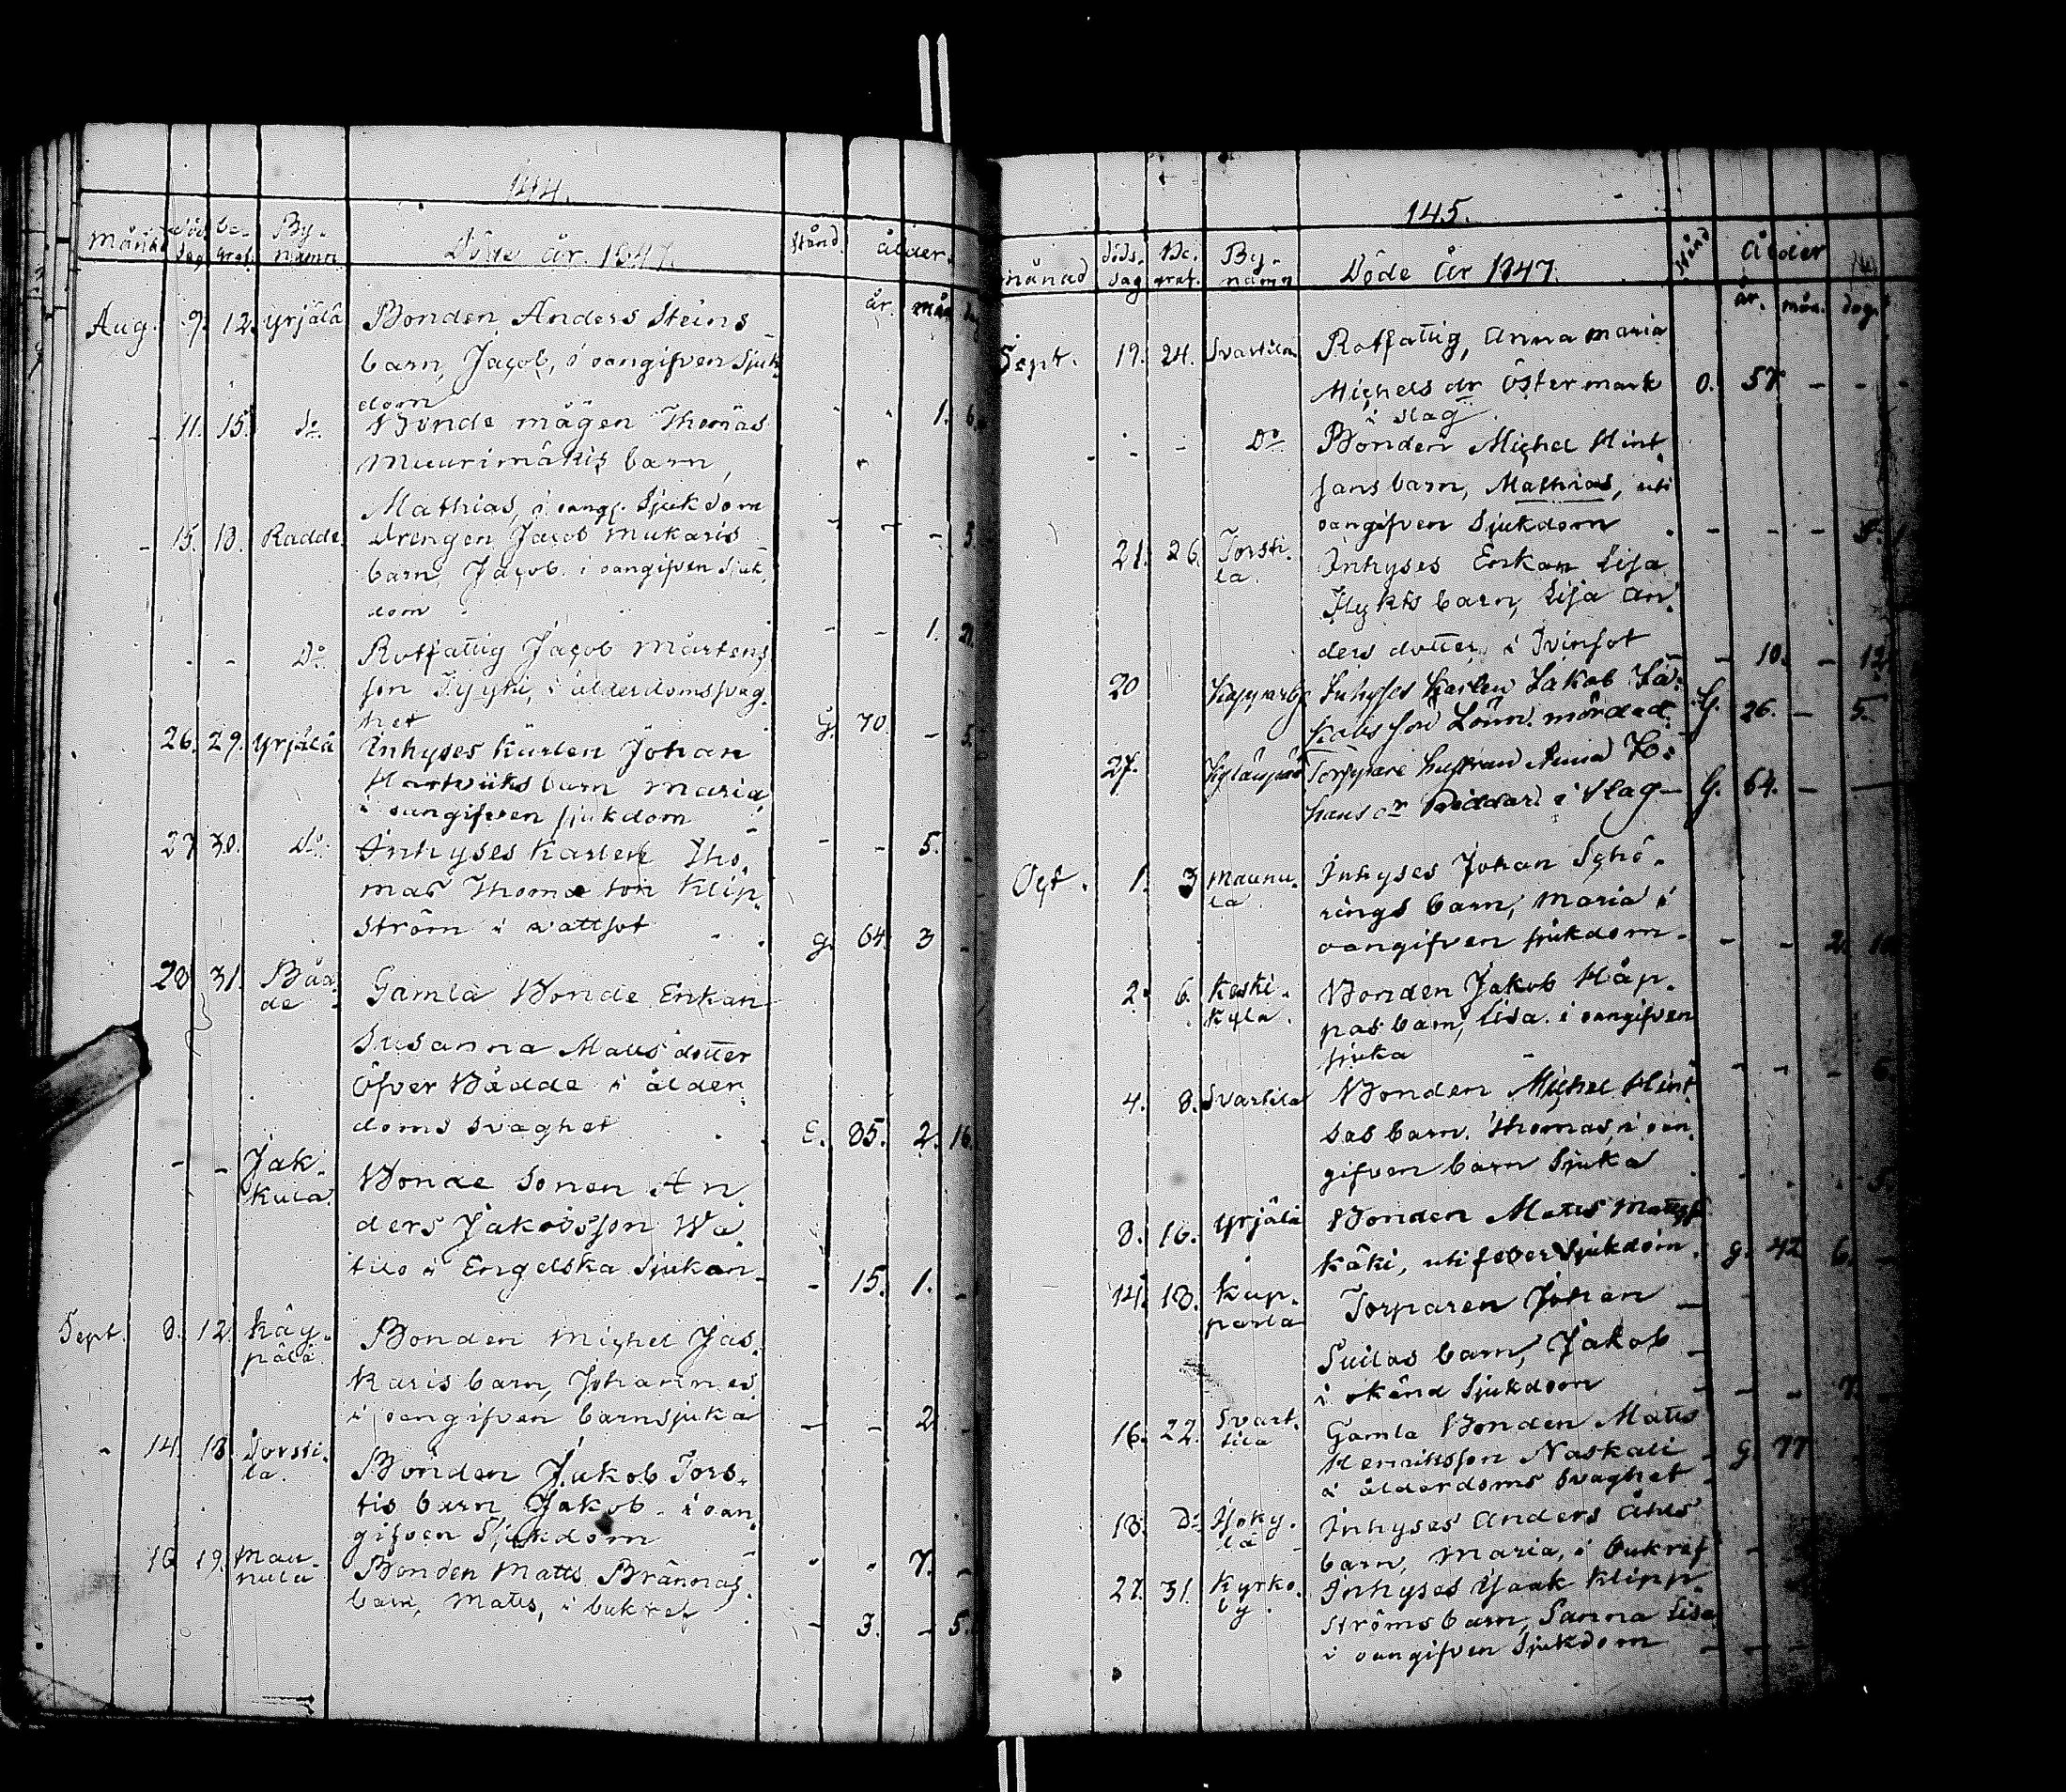 144.
Månad döds dag be- graf. By- namn Döde år 1847. Stånd ålder.
år. mån. dag
Aug. 9. 12. Yrjälä Bonden Anders Steins
barn, Jacob, i oangifven Sjuk-
dom 1. 6.
11. 15. Do Bonde mågen Thomas
Muurimäkis barn,
Mathias, i oangf. Sjukdom - - - 5.
15. 18. Radde. drengen Jacob Mukaris
barn, Jacob. i oangifven Sjuk-
dom - - 1. 21.
- - Do Rotfattig Jacob Mårtens
son Tyyki, i ålderdomssvag-
het G. 70. - 5.
26. 29. Yrjälä Inhyses Karlen Johan
Hartviks barn Maria
i oangifven sjukdom - - 5. -
27. 30. Do Inhyses Karlen Tho-
mas Thomæ son Klip-
ström i vattsot G. 64. 3 -
28. 31. Båa-
de Gamla Bonde Enkan
Susanna Matts dotter
Öfver Bådde i ålder-
doms svaghet E. 85. 2. 16.
- - Jak-
kula Bonde Sonen An-
ders Jakobsson Wa-
tilo i Engelska Sjukan - 15. 1. -
Sept. 8. 12. Käp-
pälä Bonden Michel Jas-
karis barn, Johannes
i oangifven barnsjuka - - 2. -
- 14. 18. Torsti-
la. Bonden Jakob Tors-
tis barn Jakob. i oan-
gifven Sjukdom - - 7. -
16 19. Mau-
nula Bonden Matts Brännas
barn, Matts, i bukref - 3. - 5.
145.
Månad döds- dag Be- graf. By- namn Döde År 1847. Stånd Ålder
år. mån. dag.
Sept. 19. 24. Svartila Rotfattig, Anna Maria
Michels dr Östermark O. 57. - - -
i slag.
- - - Do Bonden Michel Hint-
sans barn, Mathias, uti
oangifven Sjukdom - - - 5.
21. 26. Torsti-
la. Inhyses Enkan Lisa
Flykts barn, Lisa An-
ders dotter, i Tvinsot - 10. - 12.
20 Kapparby Inhyses Karlen Jakob Ja-
kobsson Lönn. mördad. G. 26. - 5.
27. Torpare hustrun Anna Jo-
hans dr Riddar. i Slag - G. 64. - -
Oct. 1. 3 Maunu-
la. Inhyses Johan Schö-
rings barn, Maria i
oangifven sjukdom - - - 2. 10
2. 6. Keski-
kylä. Bonden Jakob Håp-
pas barn, Lisa. i oangifven
sjuka - - - 6.
4. 8. Svartila Bonden Michel Hint-
sas barn. Thomas, i oan-
gifven barn Sjuka 5.
8. 16. Yrjälä Bonden Matts Mattsf
Käki, uti feber Sjukdom. G. 42 6. -
14. 18. Kap-
parla Torparen Johan
Suilas barn, Jakob
i okänd Sjukdom - - - 7. -
16. 22. Svart-
tila Gamla Bonden Matts
Henriksson Naskali - G. 77
i ålderdoms svaghet -
18. Do Isoky-
lä Inhyses Anders Åhls
barn, Maria, i bukref -
27. 31. Kyrko-
by. Inhyses Isaak Klipp-
ströms barn, Sanna Lisa
i oangifven Sjukdom - - -